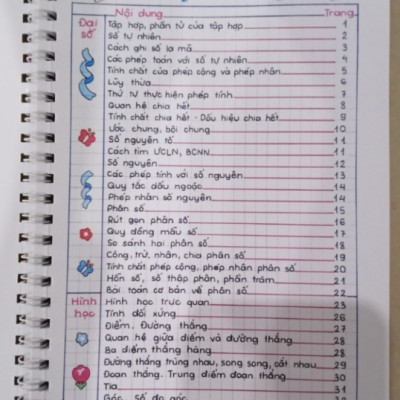 Nội dung Trang
Đại số
Tập hợp, phần tử của tập hợp 1
Số tự nhiên 2
Cách ghi số la mã 3
Các phép toán với số tự nhiên 4
Tính chất của phép cộng và phép nhân 5
Lũy thừa 6
Thứ tự thực hiện phép tính 7
Quan hệ chia hết 8
Tính chất chia hết - Dấu hiệu chia hết 9
Ước chung, bội chung 10
Số nguyên tố 11
Cách tìm ƯCLN, BCNN 11
Số nguyên 12
Các phép tính với số nguyên 13
Quy tắc dấu ngoặc 14
Phép nhân số nguyên 14
Phân số 15
Rút gọn phân số 16
Quy đồng mẫu số 17
So sánh hai phân số 18
Cộng, trừ, nhân, chia phân số 19
Tính chất phép cộng, phép nhân phân số 20
Hỗn số, số thập phân, phần trăm 21
Bài toán cơ bản về phân số 22
Hình học
Hình học trực quan 23
Tính đối xứng 26
Điểm, Đường thẳng 27
Quan hệ giữa điểm và đường thẳng 28
Ba điểm thẳng hàng 28
Đường thẳng trùng nhau, song song, cắt nhau 29
Đoạn thẳng. Trung điểm đoạn thẳng 30
Tia 31
Góc. Số đo góc